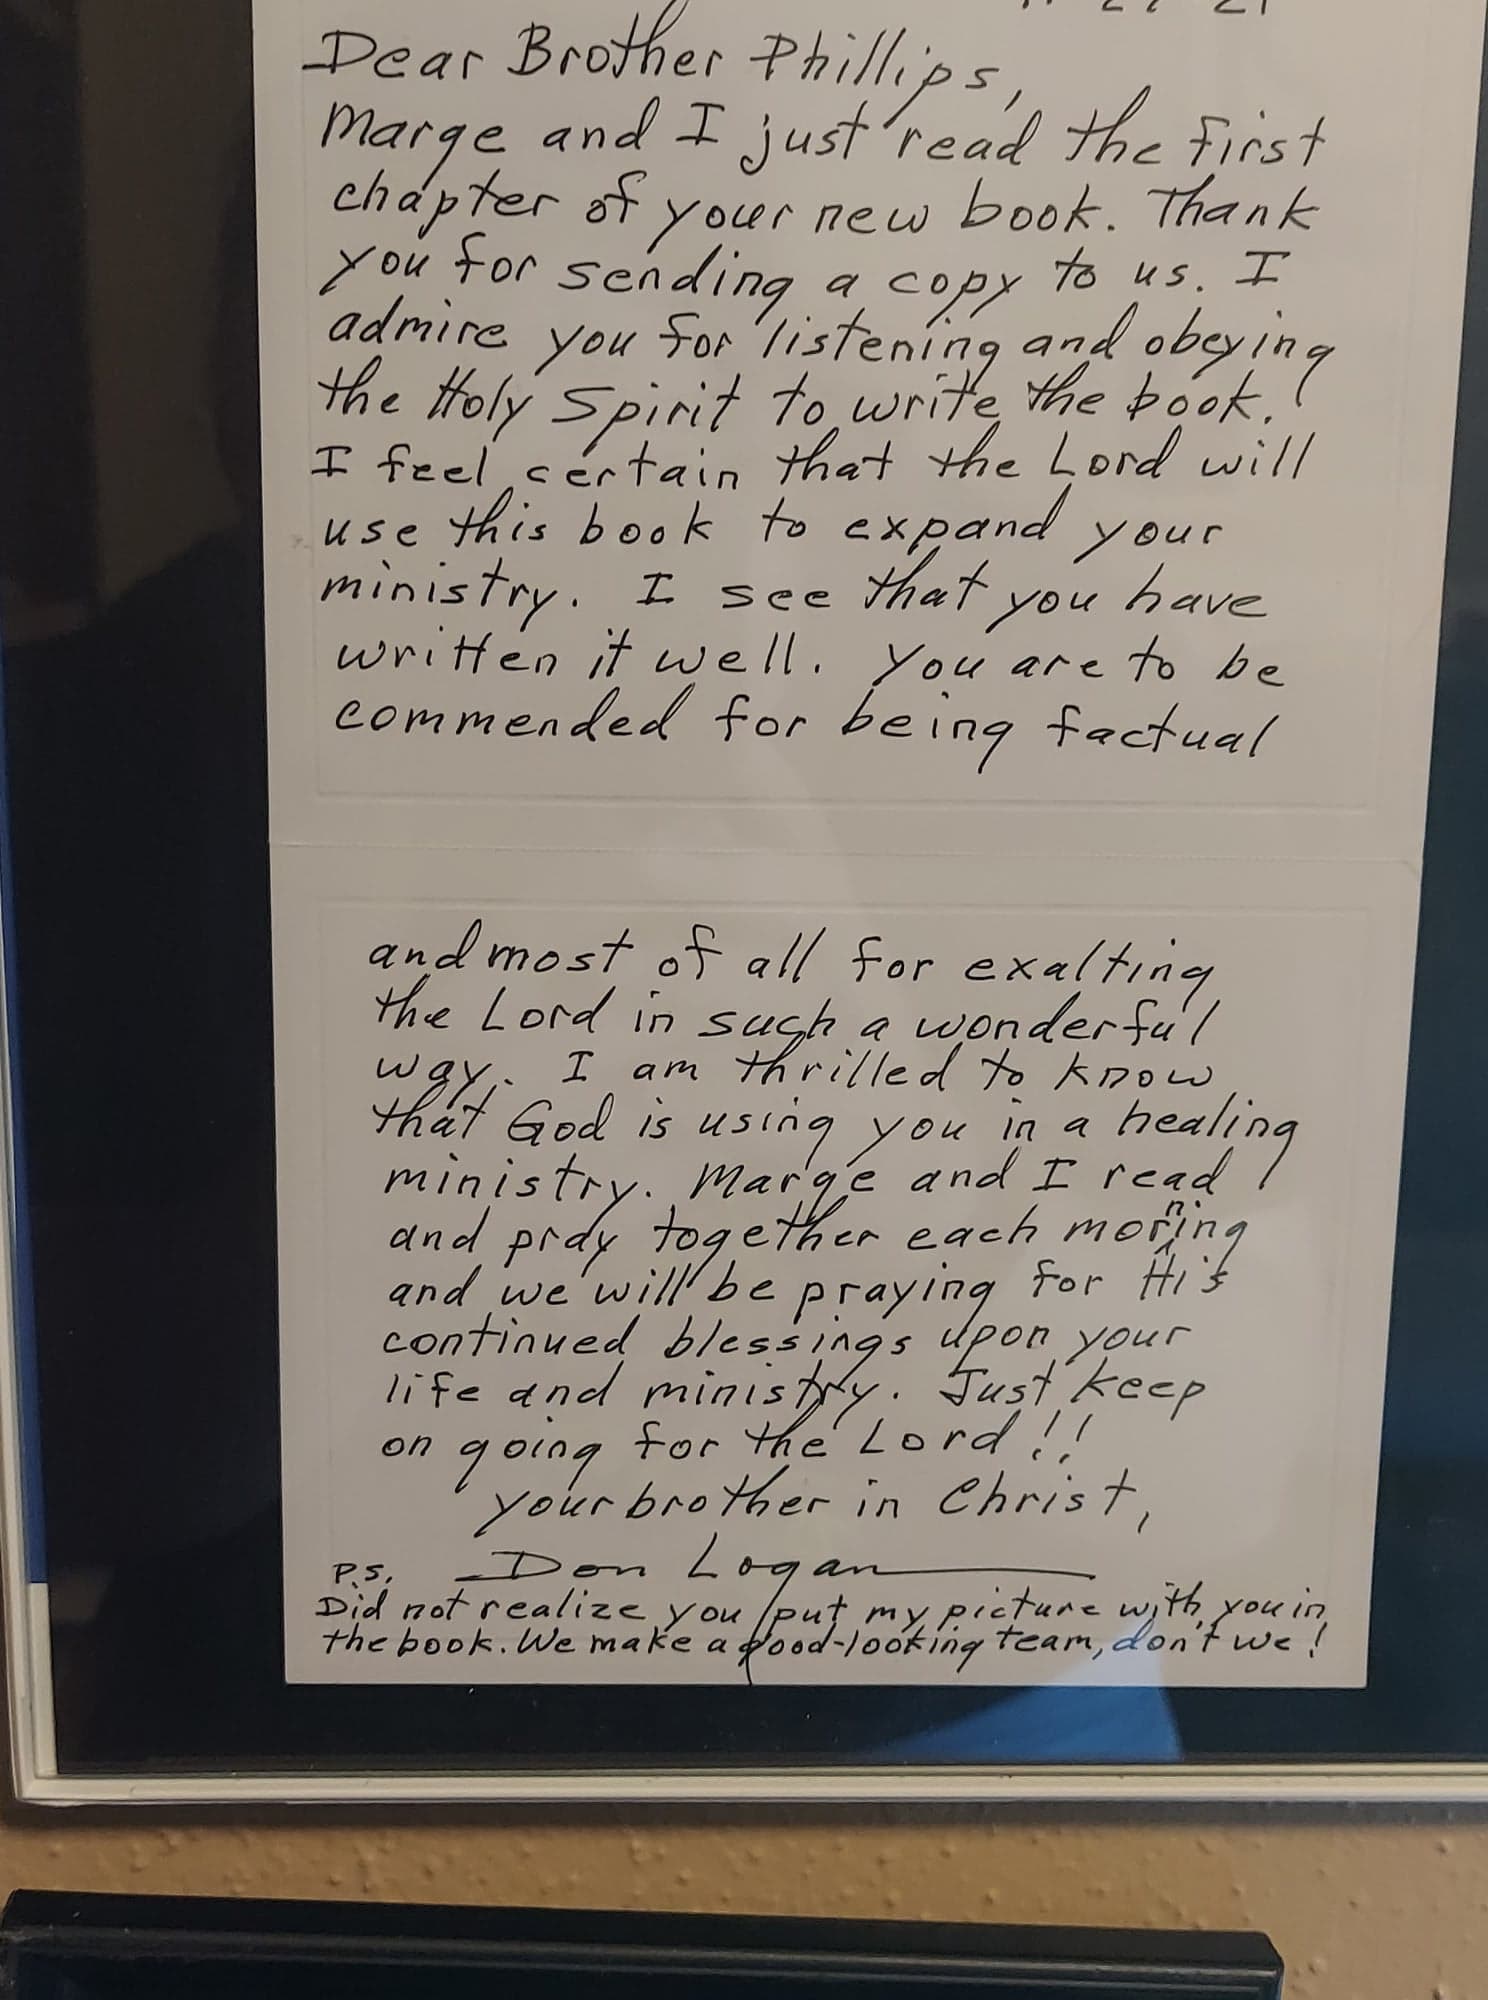 Dear Brother Phillips,
Marge and I just read the first
chapter of your new book. Thank
you for sending a copy to us. I
admire you for listening and obeying
the Holy Spirit to write the book.
I feel certain that the Lord will
use this book to expand your
ministry. I see that you have
written it well. You are to be
commended for being factual
and most of all for exalting
the Lord in such a wonderful
way. I am thrilled to know
that God is using you in a healing
ministry. Marge and I read
and pray together each morning
and we will be praying for His
continued blessings upon your
life and ministry. Just keep
on going for the Lord!!
your brother in Christ,
Don Logan
P.S.
Did not realize you put my picture with you in
the book. We make a good-looking team, don't we!